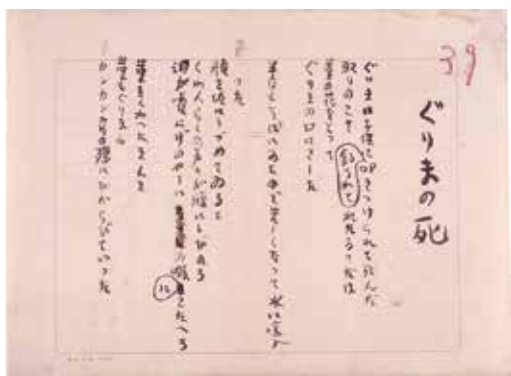 39
ぐりまの死
ぐりまは子供に叩きつけられて死んだ
釣られて
取りのこされたるりだは
菫の花をとって
ぐりまの口にさした
半日もそばにゐたので苦しくなって水に這入
った
顔を泥にうづめてゐると
くわんらくの声々が腹にしびれる
泪が噴上げのやうに喉にこたへる
菫をくわへたまんま
菫もぐりまも
カンカン夏の陽にひからびていった